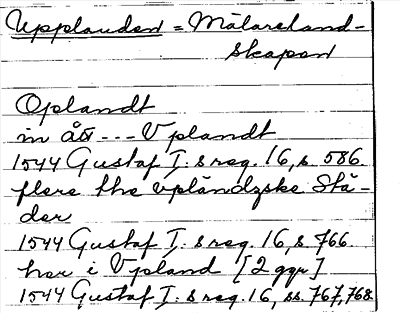 Upplanden = Mälareland-
skapen
Oplandt
in ått --- Vplandt
1544 Gustaf I:s reg. 16, s. 586
flere the vpländzske Stä-
der
1544 Gustaf I:s reg. 16, s. 766
her i Vpland [2 ggr]
1544 Gustaf I:s reg. 16, ss. 767, 768